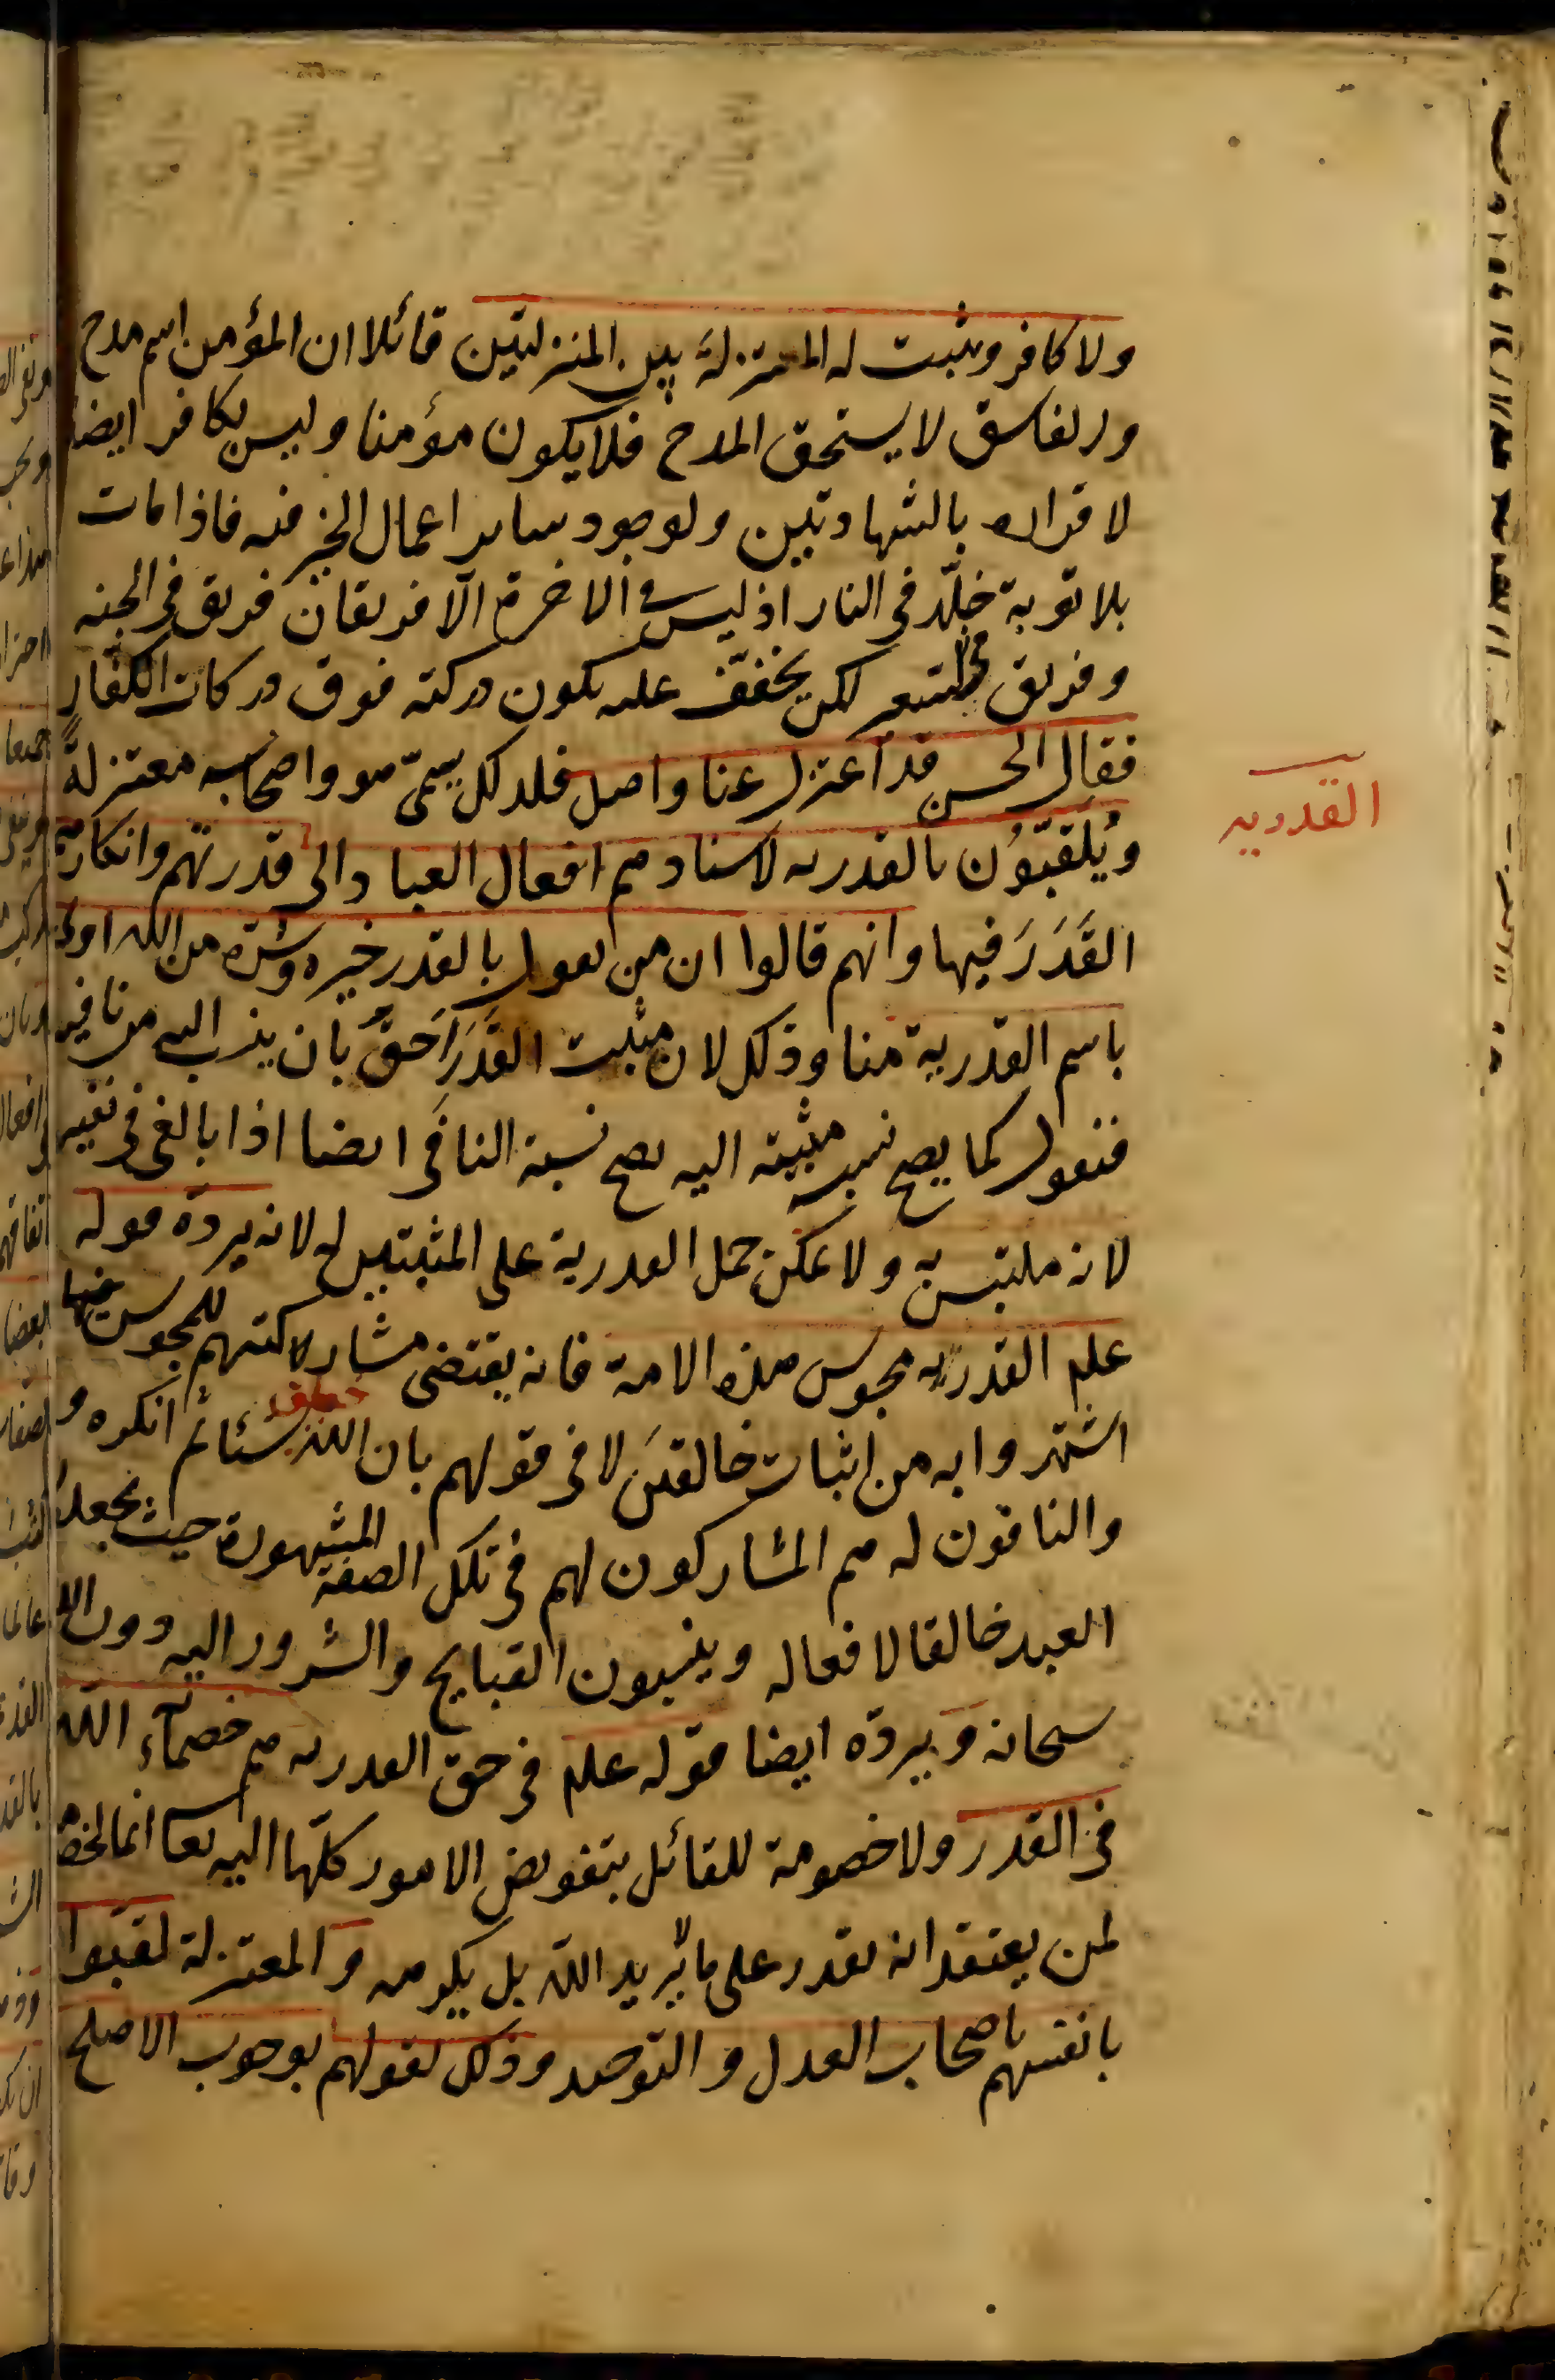 ولا كافر ويثبت له المنزلة بين المنزلتين قائلا ان المؤمن اسم مدح
والفاسق لا يستحق المدح فلا يكون مؤمنا وليس بكافر ايضا
لاقراره بالشهادتين ولوجود ساير اعمال الخير فيه فاذا مات
بلا توبة خلّد في النار اذ ليس في الاخرة الّا فريقان فريق في الجنه
وفريق في السعير لكن يخفّف عليه يكون دركته فوق دركات الكفّار
فقال الحسن قد اعتزل عنا واصل فلذلك سمّى هو واصحابه معتزلةً
القدريه
ويُلَقَّبُون بالقدريه لاسنادهم افعال العباد الى قدرتهم وانكارهم
القَدَرَ فيها وانهم قالوا ان من يقول بالقدر خيره وشرّه من الله اولى
باسم القدرية منا وذلك لان مثبت القَدَر اَحقّ بان ينسب اليه من نافيه
فنقول كما يصح نسبة مثبته اليه يصح نسبة النافى ايضا اذا بالغ فى نفيه
لانه ملتبس به ولا يمكن حمل القدرية على المثبتين له لانه يردّه قوله
علم القدريه مجوس هذه الامة فانه يقتضى مشاركتهم للمجوس فيما
اشتهروا به من اثبات خالقَين لا فى قولهم بان الله خلق شيئا ثم انكره و
والنافون له هم المشاركون لهم فى تلك الصفة المشهورة حيث يجعلون
العبد خالقا لافعاله وينسبون القبايح والشرور اليه دون الله
سبحانه ويردّه ايضا قوله علم فى حق القدريه هم خصمآء الله
فى القدر ولا خصومة للقائل بتفويض الامور كلّها اليه تعا انما الخصومة
لمن يعتقد انه يقدر على ما لا يريد الله بل يكرهه والمعتزلة لقبوا
بانفسهم باصحاب العدل والتوحيد وذلك لقولهم بوجوب الاصلح